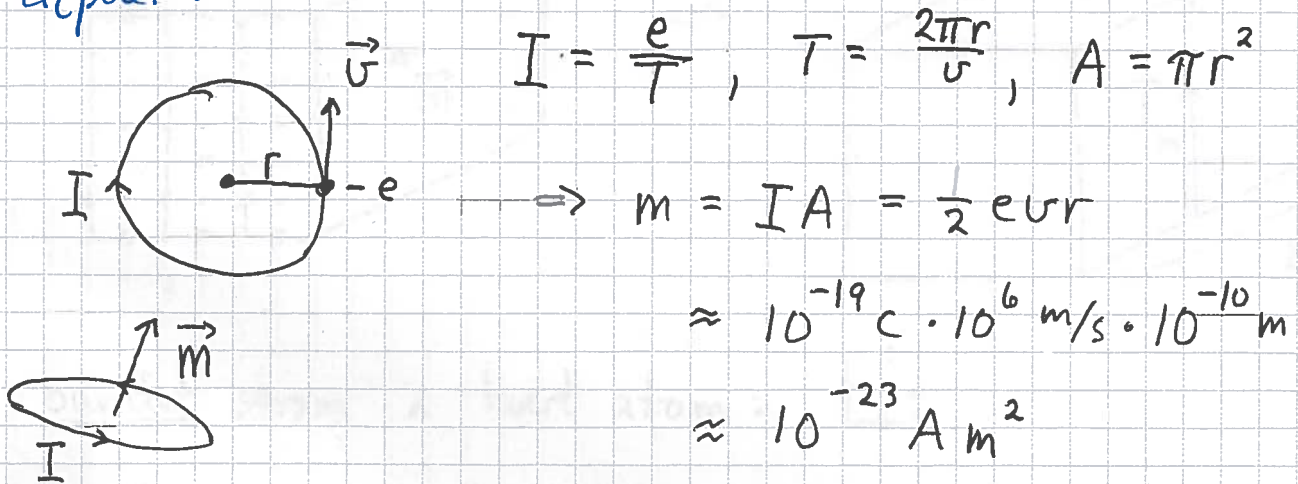 I = e/T , T = 2πr/v , A = πr²
v⃗
r
I
-e
⇒ m = IA = 1/2 evr
≈ 10⁻¹⁹ C · 10⁶ m/s · 10⁻¹⁰ m
m⃗
≈ 10⁻²³ A m²
I